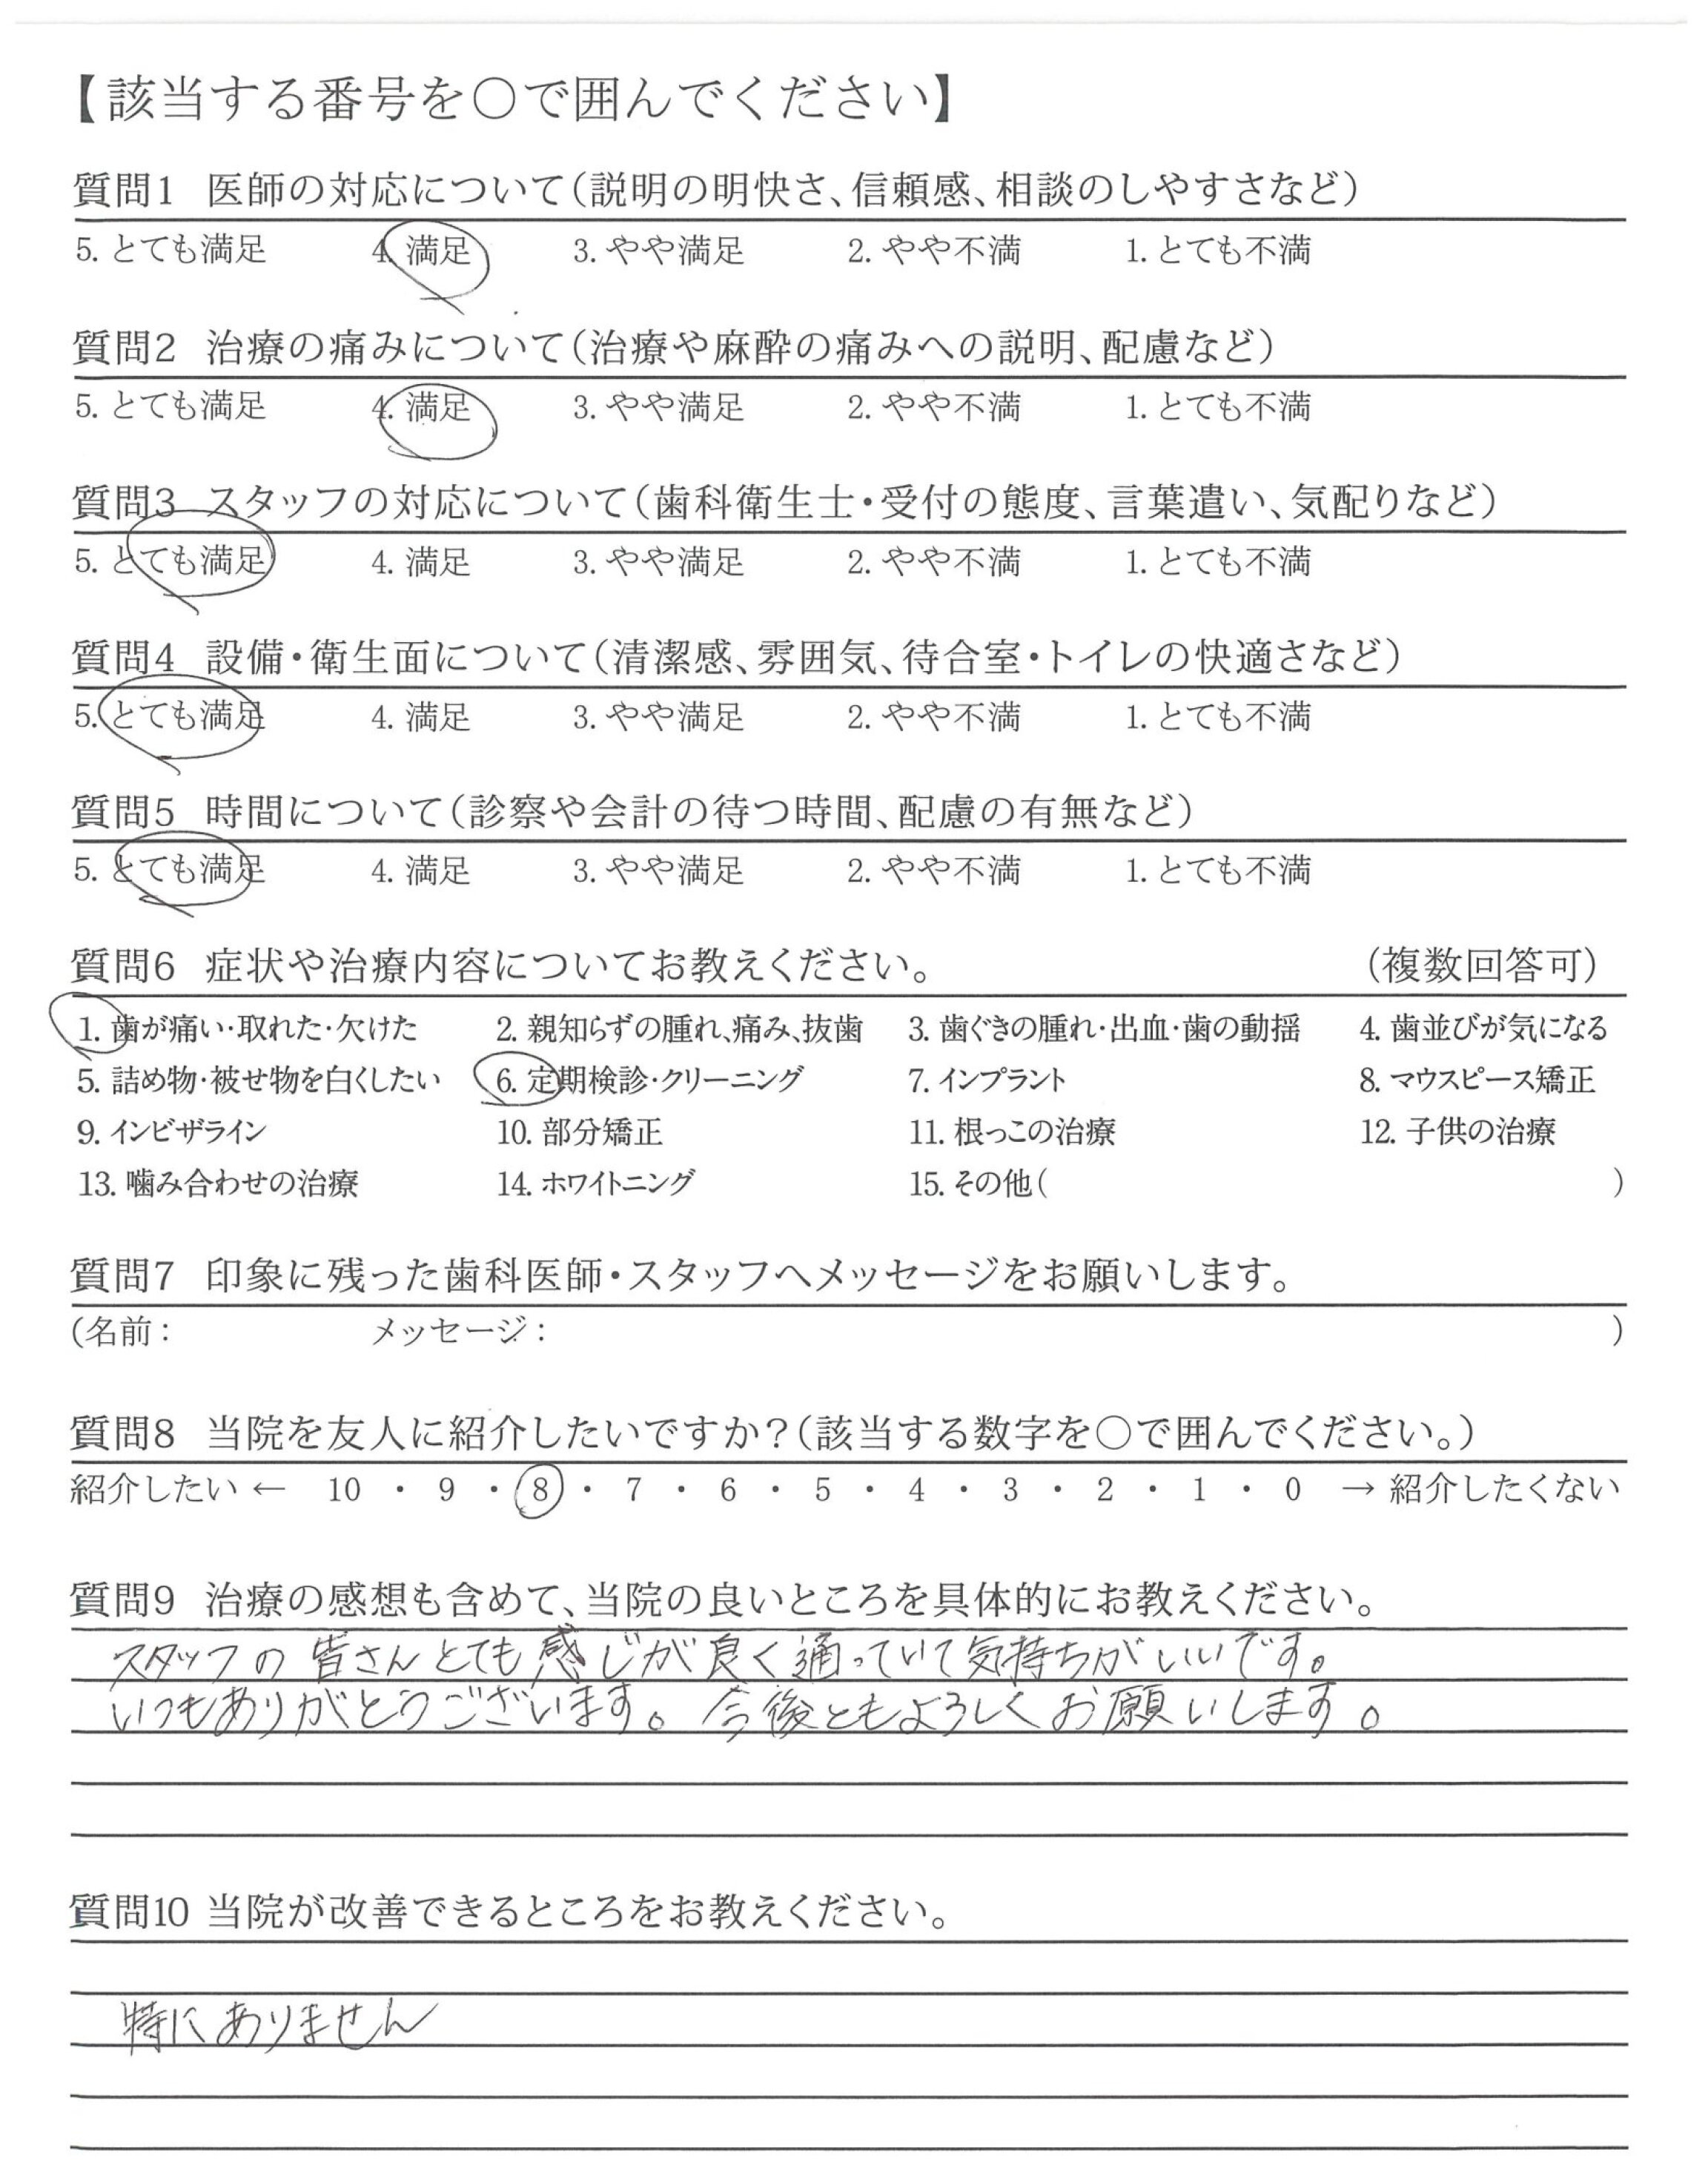 【該当する番号を〇で囲んでください】
質問1 医師の対応について(説明の明快さ、信頼感、相談のしやすさなど)
5. とても満足 4. 満足 3. やや満足 2. やや不満 1. とても不満
質問2 治療の痛みについて(治療や麻酔の痛みへの説明、配慮など)
5. とても満足 4. 満足 3. やや満足 2. やや不満 1. とても不満
質問3 スタッフの対応について(歯科衛生士・受付の態度、言葉遣い、気配りなど)
5. とても満足 4. 満足 3. やや満足 2. やや不満 1. とても不満
質問4 設備・衛生面について(清潔感、雰囲気、待合室・トイレの快適さなど)
5. とても満足 4. 満足 3. やや満足 2. やや不満 1. とても不満
質問5 時間について(診察や会計の待つ時間、配慮の有無など)
5. とても満足 4. 満足 3. やや満足 2. やや不満 1. とても不満
質問6 症状や治療内容についてお教えください。 (複数回答可)
1. 歯が痛い・取れた・欠けた 2. 親知らずの腫れ、痛み、抜歯 3. 歯ぐきの腫れ・出血・歯の動揺 4. 歯並びが気になる
5. 詰め物・被せ物を白くしたい 6. 定期検診・クリーニング 7. インプラント 8. マウスピース矯正
9. インビザライン 10. 部分矯正 11. 根っこの治療 12. 子供の治療
13. 噛み合わせの治療 14. ホワイトニング 15. その他( )
質問7 印象に残った歯科医師・スタッフへメッセージをお願いします。
(名前: メッセージ: )
質問8 当院を友人に紹介したいですか?(該当する数字を〇で囲んでください。)
紹介したい ← 10 ・ 9 ・ 8 ・ 7 ・ 6 ・ 5 ・ 4 ・ 3 ・ 2 ・ 1 ・ 0 → 紹介したくない
質問9 治療の感想も含めて、当院の良いところを具体的にお教えください。
スタッフの皆さんとても感じが良く通っていて気持ちがいいです。
いつもありがとうございます。今後ともよろしくお願いします。
質問10 当院が改善できるところをお教えください。
特にありません